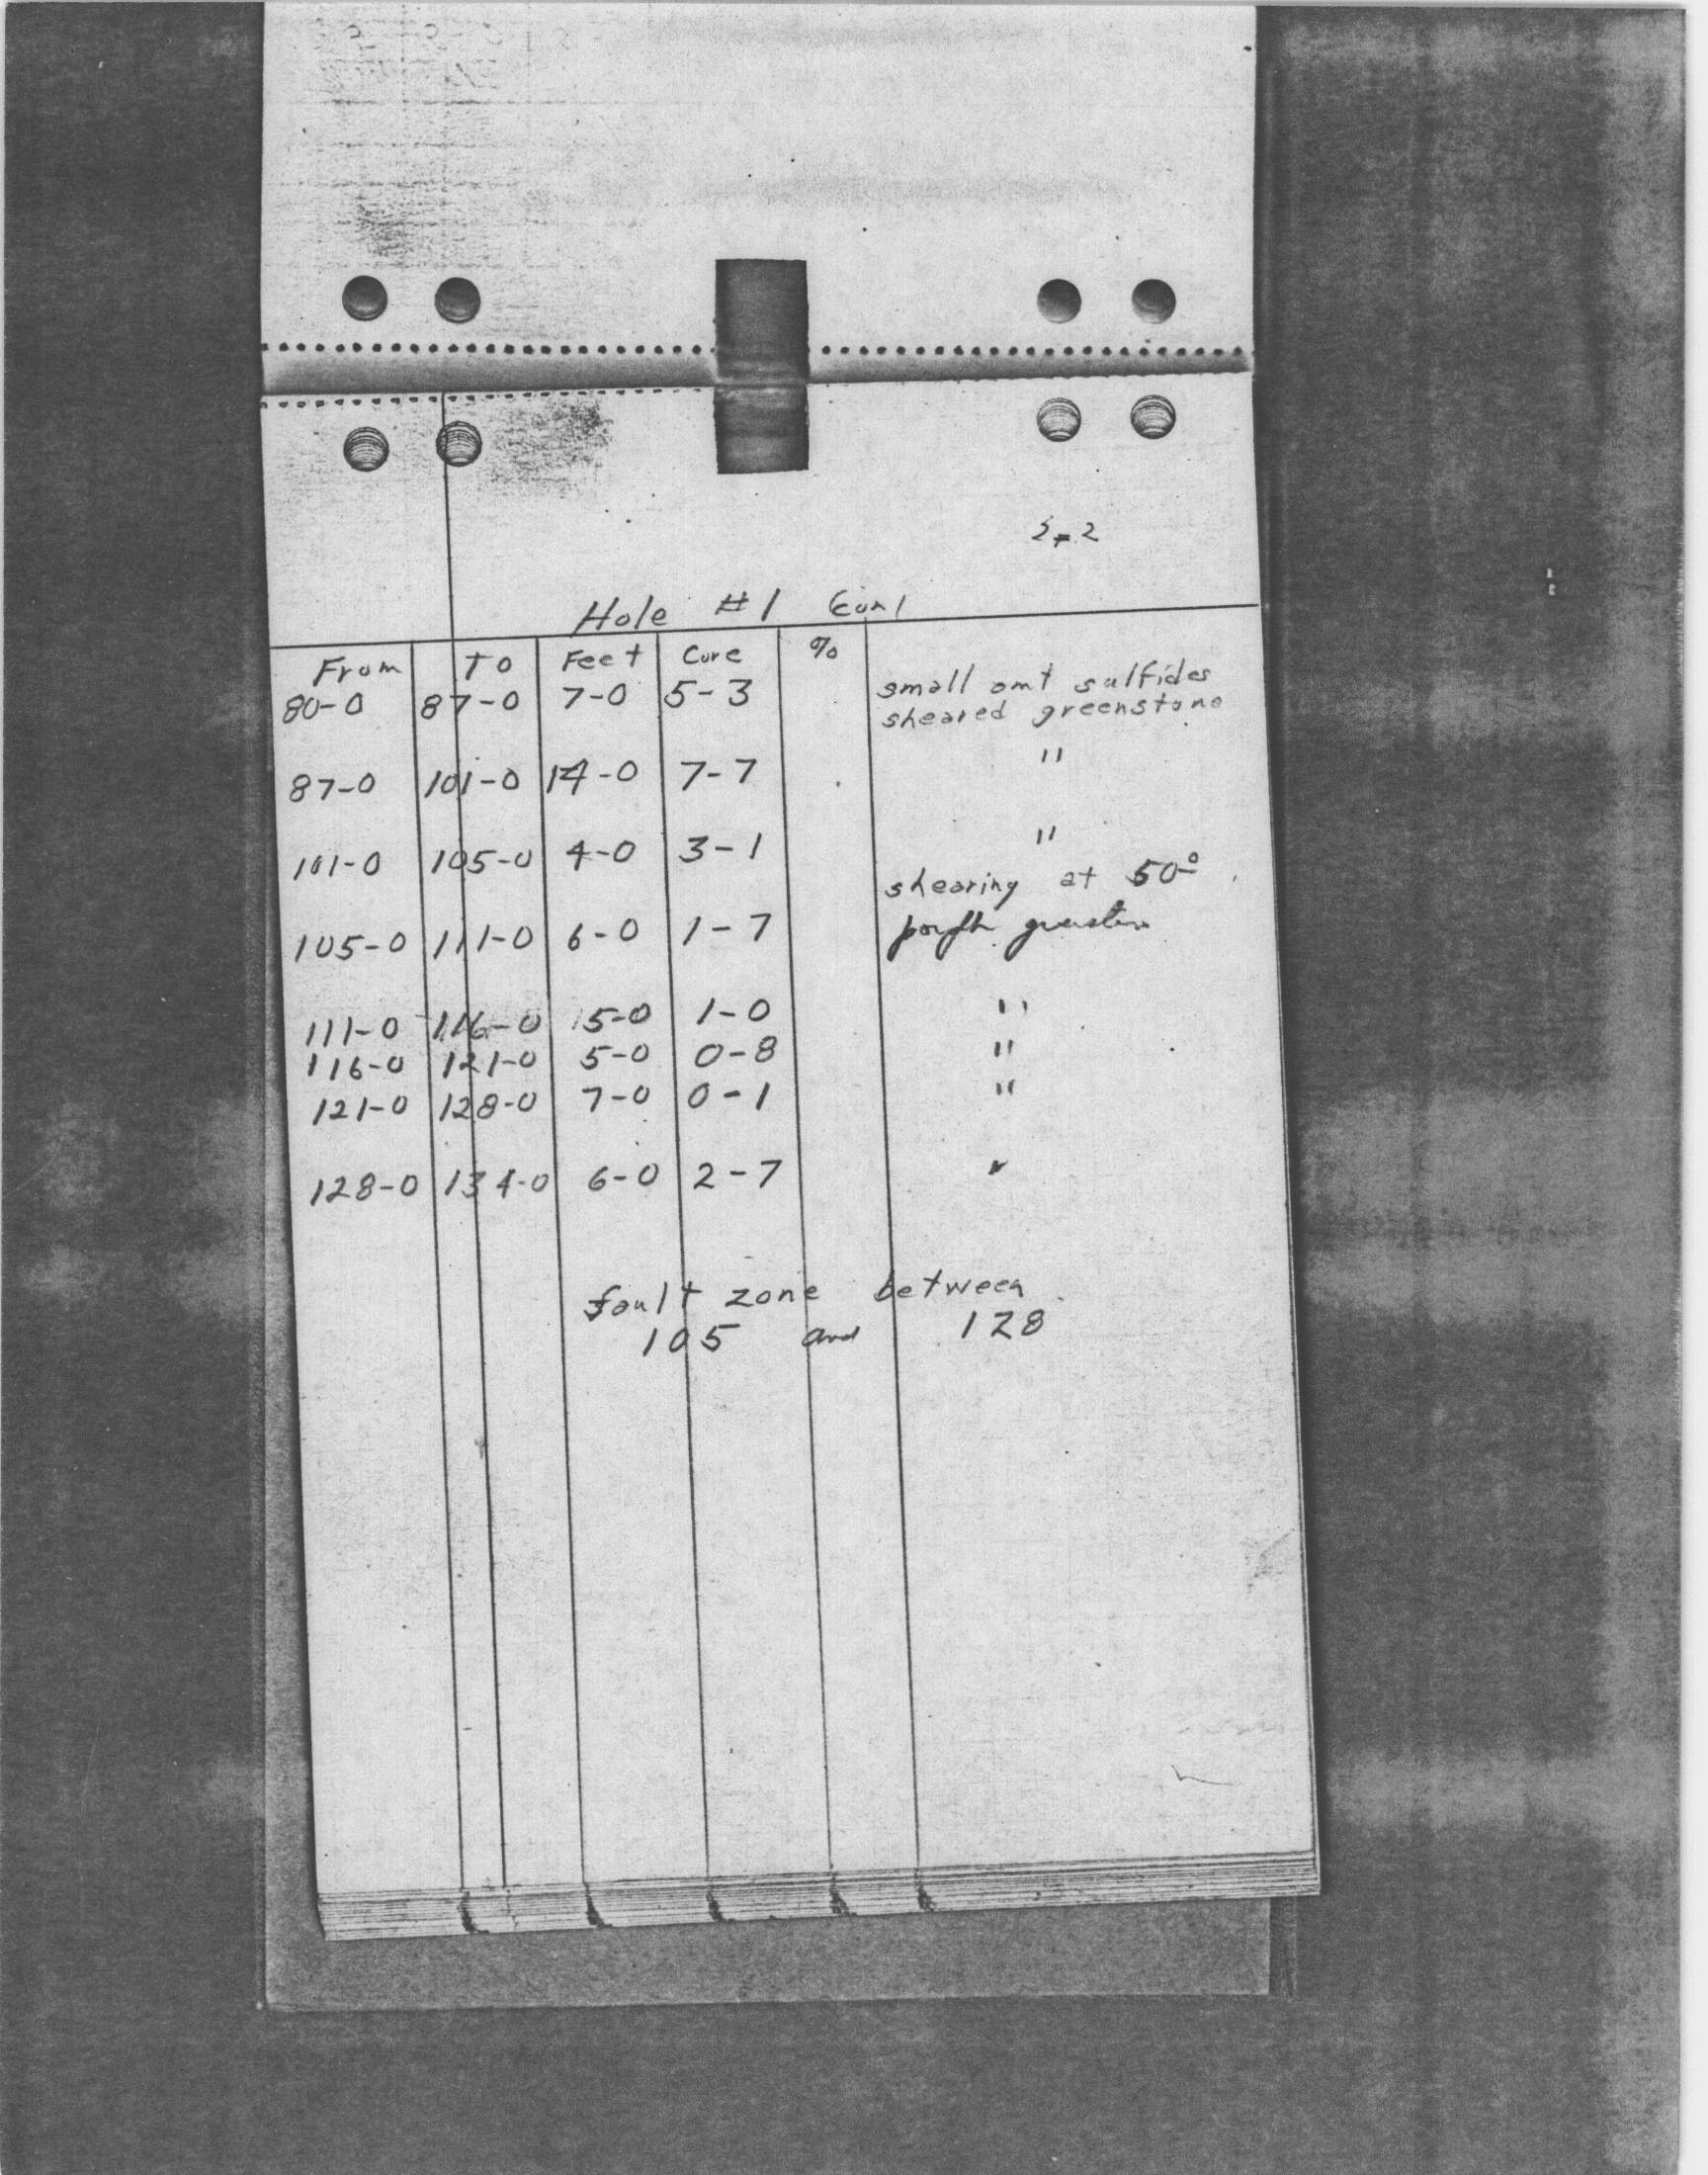 Hole #1
From To Feet Core %
80-0 87-0 7-0 5-3 small amt sulfides
sheared greenstone
87-0 101-0 14-0 7-7 "
101-0 105-0 4-0 3-1 "
shearing at 50°
105-0 111-0 6-0 1-7
111-0 116-0 5-0 1-0 "
116-0 121-0 5-0 0-8 "
121-0 128-0 7-0 0-1 "
128-0 134-0 6-0 2-7 "
fault zone between
105 and 128